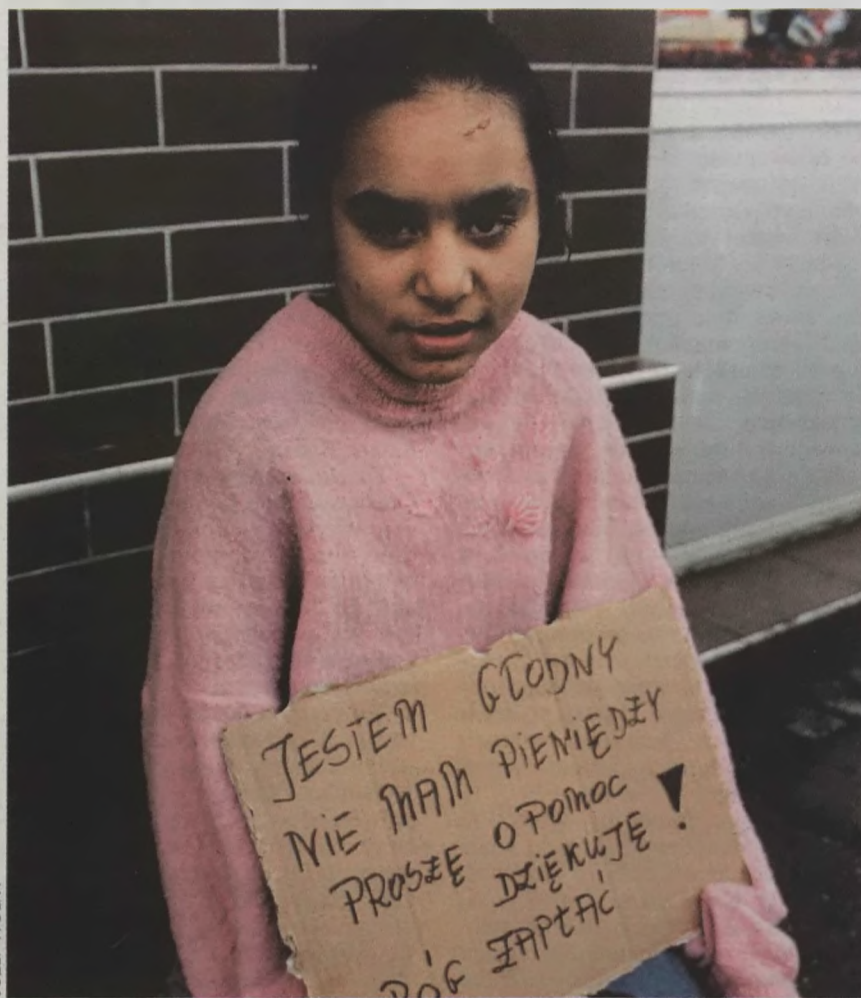 JESTEM GŁODNY
NIE MAM PIENIĘDZY
PROSZĘ O POMOC
DZIĘKUJĘ !
BÓG ZAPŁAĆ